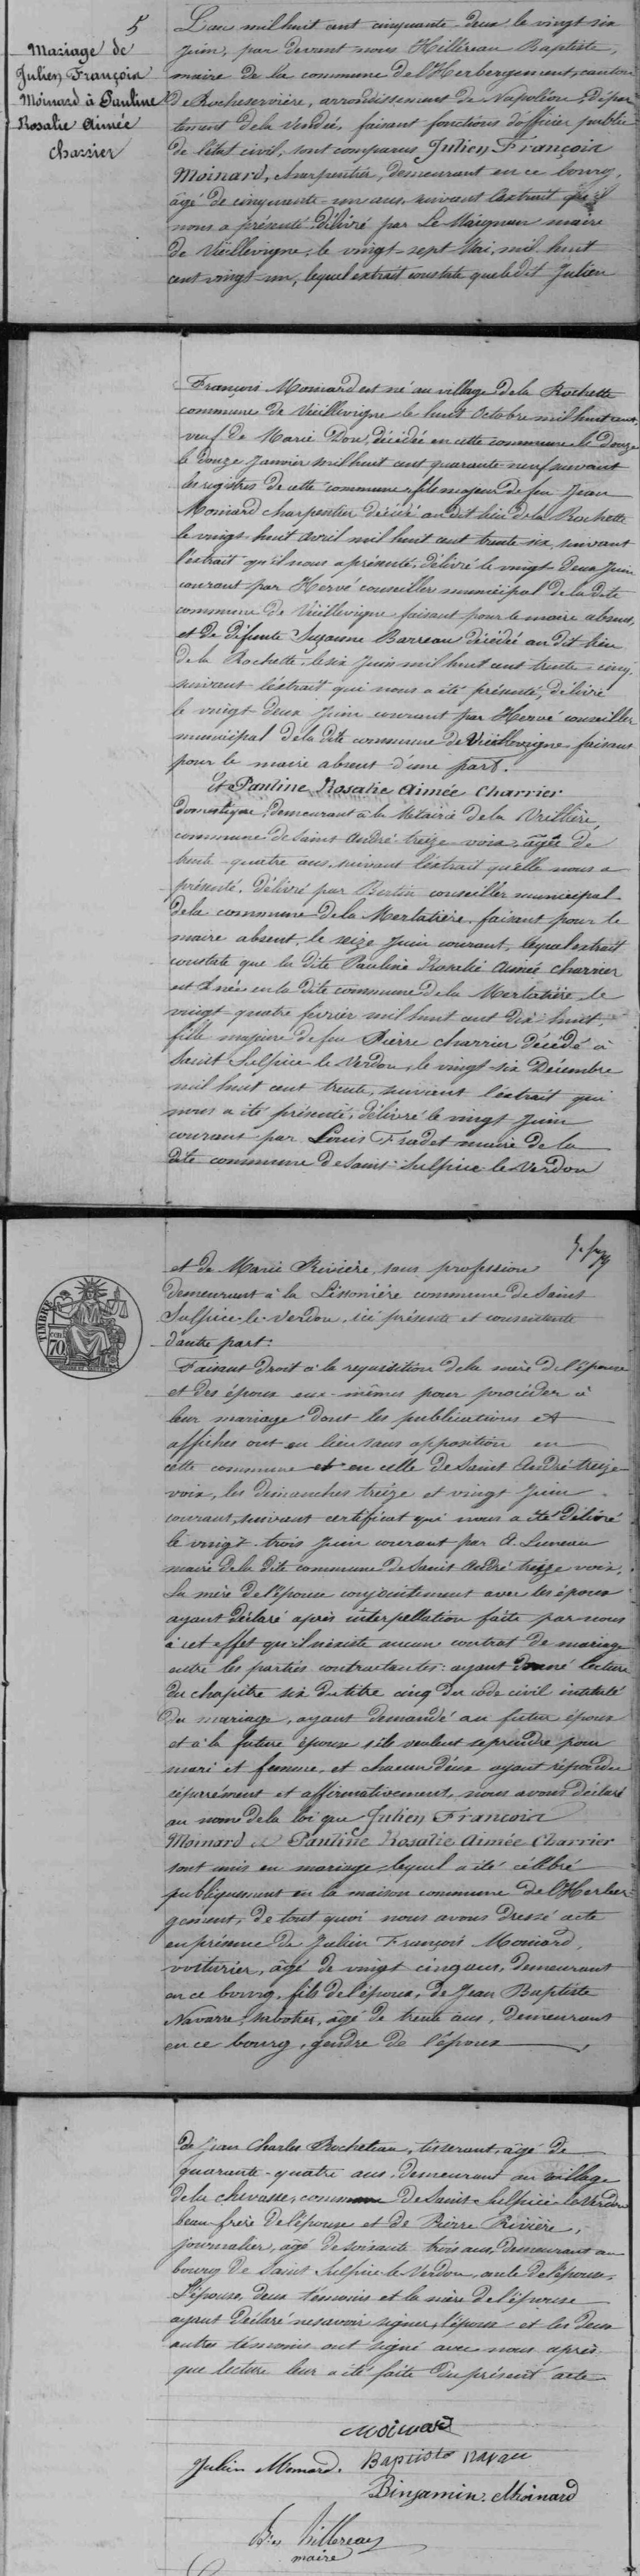 5
Mariage de
Julien François
Moinard à Pauline
Rosalie Aimée
Charrier
L'an mil huit cent cinquante-deux le vingt six
Juin, par devant nous Hillereau Baptiste,
maire de la commune de l'Herbergement, canton
de Rocheservière, arrondissement de Napoléon, dépar-
tement de la Vendée, faisant fonctions d'officier public
de l'état civil, sont comparus Julien François
Moinard, charpentier, demeurant en ce bourg,
âgé de cinquante-un ans, suivant l'extrait qu'il
nous a présenté délivré par Le Maignan maire
de Vieillevigne, le vingt-sept Mai, mil huit
cent vingt-un, lequel extrait constate que le dit Julien
François Moinard est né au village de la Rochette
commune de Vieillevigne le huit Octobre mil huit cent,
veuf de Marie Dou, décédée en cette commune le douze
le douze Janvier mil huit cent quarante neuf suivant
les registres de cette commune, fils majeur de feu Jean
Moinard charpentier décédé au dit lieu de la Rochette
le vingt-huit avril mil huit cent trente six, suivant
l'extrait qu'il nous a présenté, délivré le vingt-deux Juin
courant par Hervé conseiller municipal de la dite
commune de Vieillevigne faisant pour le maire absent,
et de défunte Suzanne Barreau décédée au dit lieu
de la Rochette, le six Juin mil huit cent trente-cinq,
suivant l'extrait qui nous a été présenté, délivré
le vingt deux Juin courant par Hervé conseiller
municipal de la dite commune de Vieillevigne faisant
pour le maire absent d'une part.
Et Pauline Rosalie Aimée Charrier
domestique, demeurant à la Métairie de la Vrillière
commune de Saint André-treize-voix, âgée de
trente-quatre ans, suivant l'extrait qu'elle nous a
présenté, délivré par Bertin conseiller municipal
de la commune de la Merlatière, faisant pour le
maire absent, le seize Juin courant, lequel extrait
constate que la dite Pauline Rosalie Aimée Charrier
est née en la dite commune de la Merlatière, le
vingt-quatre février mil huit cent dix-huit,
fille majeure de feu Pierre Charrier décédé à
Saint Sulpice le Verdon, le vingt-six Décembre
mil huit cent trente, suivant l'extrait qui
nous a été présenté, délivré le vingt Juin
courant par Louis Fradet maire de la
dite commune de Saint-Sulpice le Verdon
TIMBRE
70
et de Marie Rivière, sans profession
demeurant à la Lissonière commune de Saint
Sulpice-le-Verdon, ici présente et consentante
d'autre part:
Faisant droit à la réquisition de la mère de l'épouse
et des époux eux-mêmes pour procéder à
leur mariage dont les publications et
affiches ont eu lieu sans opposition en
cette commune et en celle de Saint André treize
voix, les dimanches treize et vingt Juin
courant, suivant certificat qui nous a été délivré
le vingt-trois Juin courant par A. Luneau
maire de la dite commune de Saint André treize voix,
La mère de l'épouse conjointement avec les époux
ayant déclaré après interpellation faite par nous
à cet effet qu'il n'existe aucun contrat de mariage
entre les parties contractantes: ayant donné lecture
du chapitre six du titre cinq du code civil intitulé
Du mariage, ayant demandé au futur époux
et à la future épouse s'ils veulent se prendre pour
mari et femme, et chacun d'eux ayant répondu
séparément et affirmativement, nous avons déclaré
au nom de la loi que Julien François
Moinard et Pauline Rosalie Aimée Charrier
sont unis en mariage, lequel a été célébré
publiquement en la maison commune de l'Herber-
gement, de tout quoi nous avons dressé acte
en présence de Julien François Moinard,
voiturier, âgé de vingt cinq ans, demeurant
en ce bourg, fils de l'époux, de Jean Baptiste
Navarre, sabotier, âgé de trente ans, demeurant
en ce bourg, gendre de l'époux
de Jean Charles Rocheteau, tisserant, âgé de
quarante-quatre ans, demeurant au village
de la chevasse, commune de Saint-Sulpice-le-Verdon
beau-frère de l'épouse et de Pierre Rivière,
journalier, âgé de soixante trois ans, demeurant au
bourg de Saint Sulpice le Verdon, oncle de l'épouse,
L'épouse, deux témoins et la mère de l'épouse
ayant déclaré ne savoir signer, l'époux et les deux
autres témoins ont signé avec nous après
que lecture leur a été faite du présent acte
Moinard
Julien Moinard. Baptiste Navau
Binjamin. Moinard
Bte Hillereau
maire